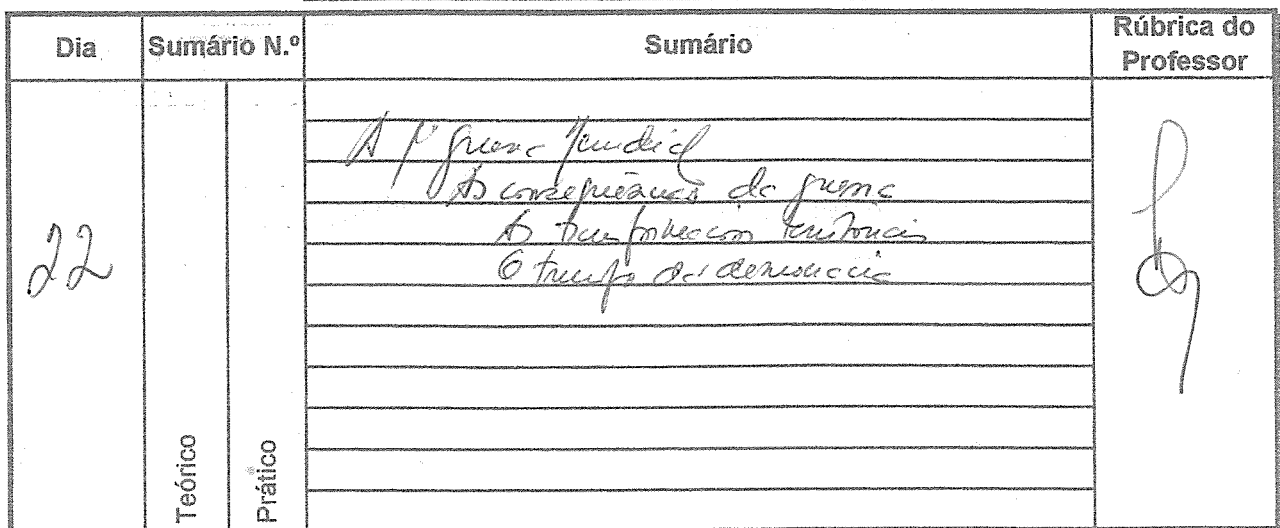 Dia Sumário N.º Sumário Rúbrica do Professor
22
A 1ª Guerra Mundial
As consequências da guerra
As transformações territoriais
O triunfo das democracias
Teórico
Prático